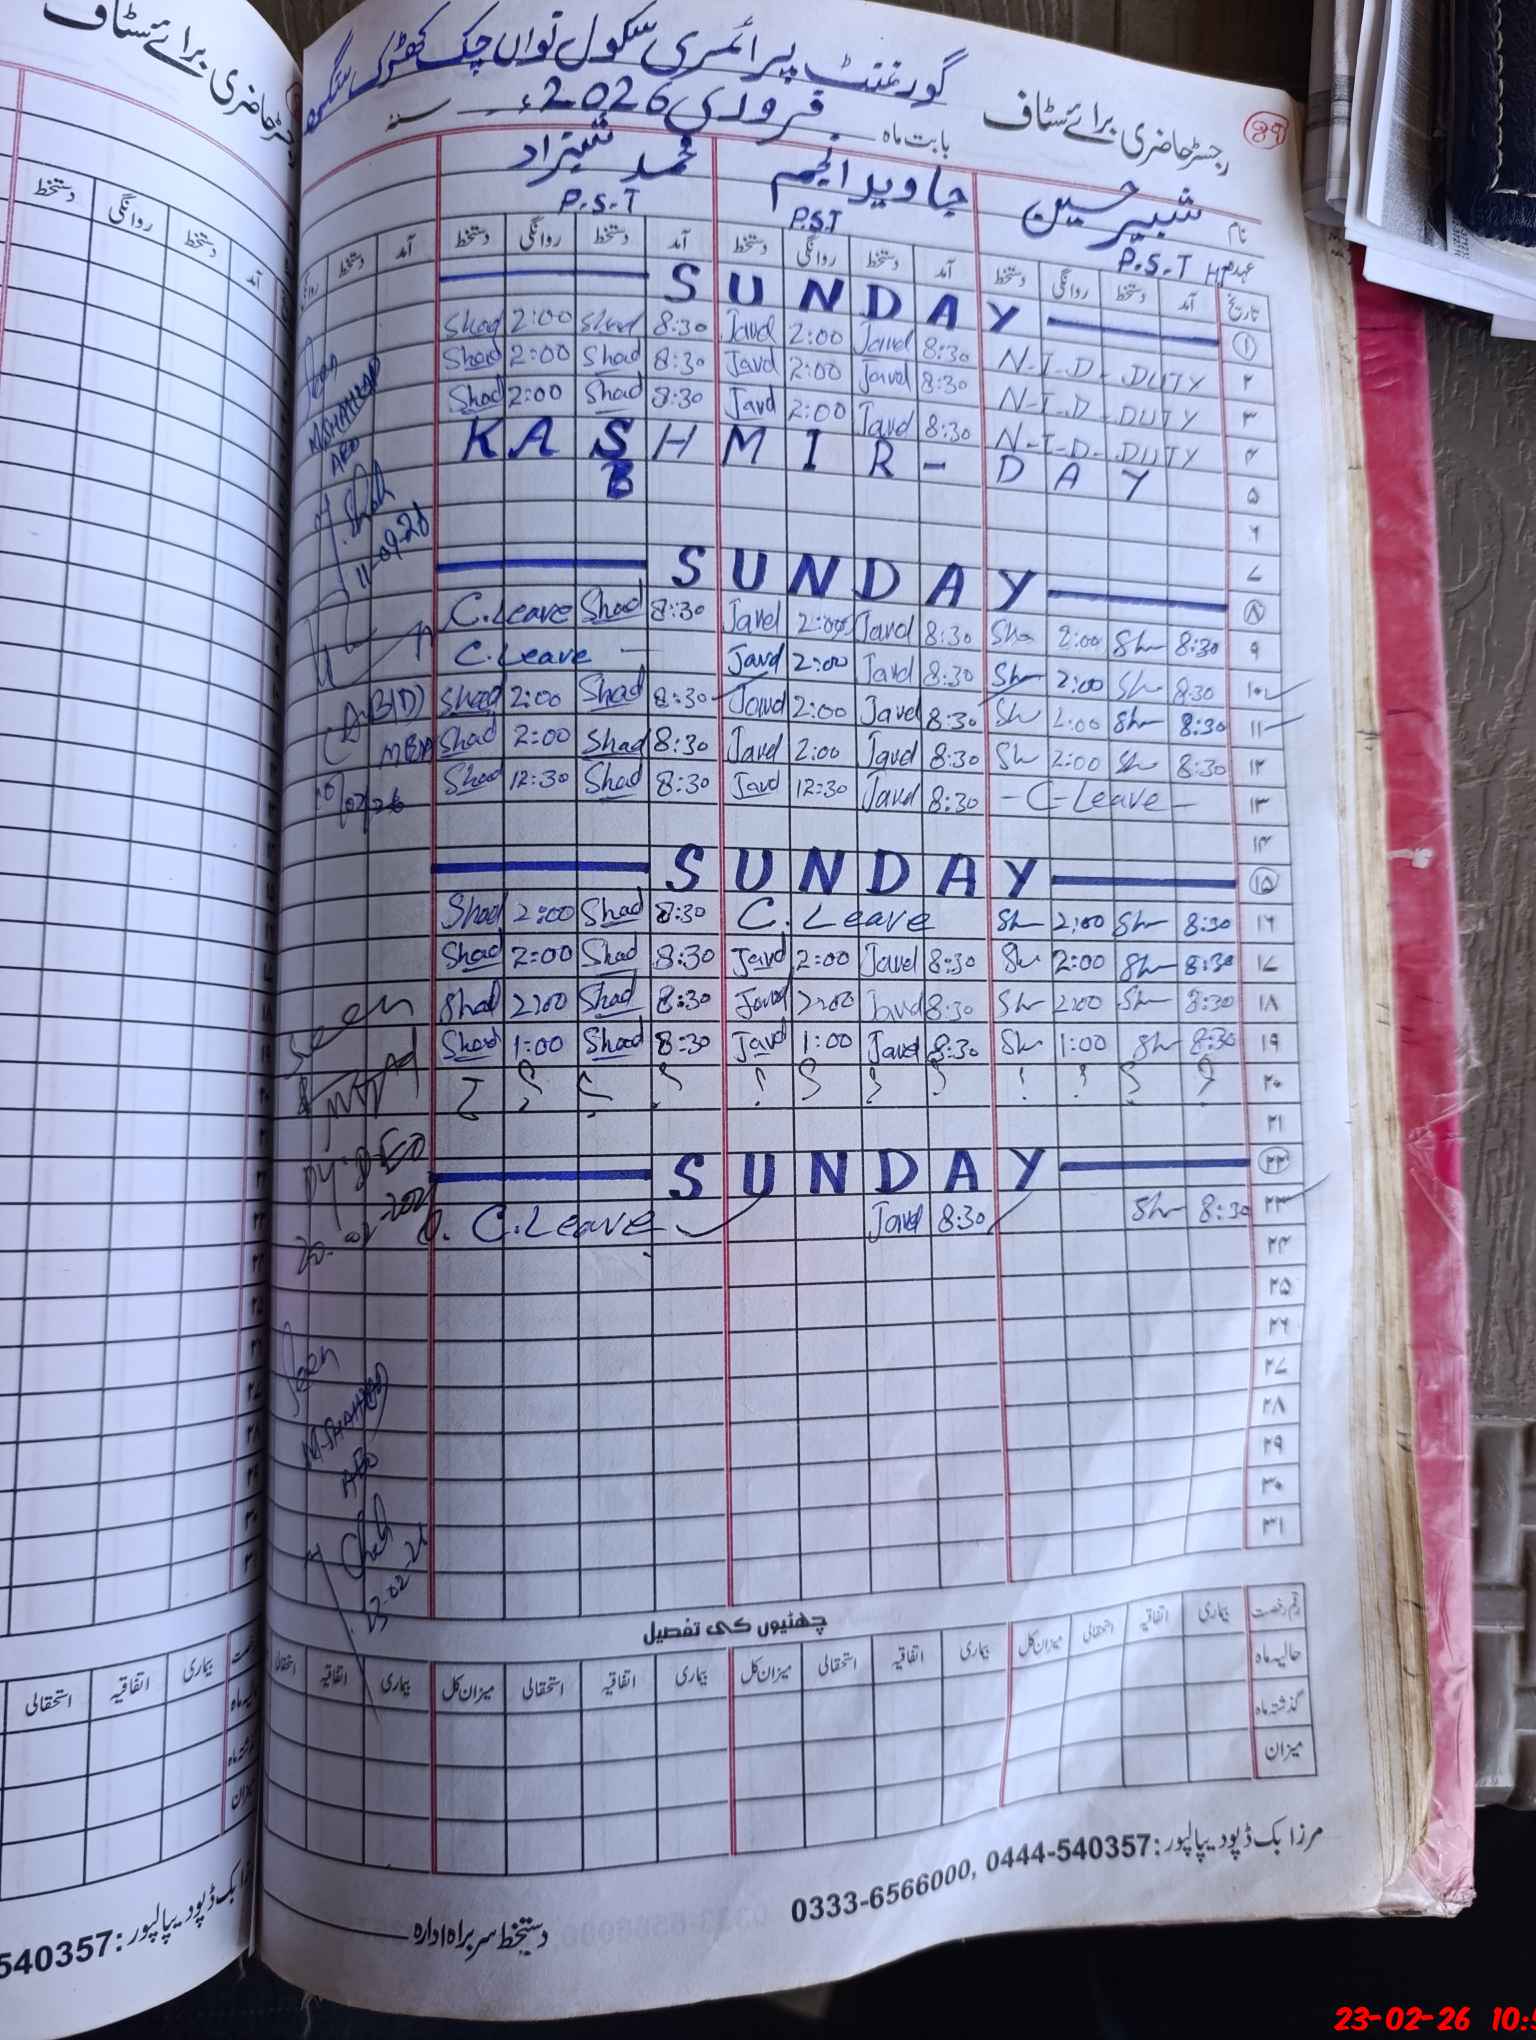 گورنمنٹ پرائمری سکول نواں چک کھڑک سنگھ
رجسٹر حاضری برائے سٹاف
89
بابت ماہ فروری 2026ء سنہ
نام شبیر حسین جاوید انجم محمد شہزاد
عہدہ P.S.T P.S.T P.S.T
تاریخ آمد دستخط روانگی دستخط آمد دستخط روانگی دستخط آمد دستخط روانگی دستخط آمد دستخط
SUNDAY ۱
Shad 2:00 Shad 8:30 Javd 2:00 Javd 8:30 N-I-D-DUTY ۲
Shad 2:00 Shad 8:30 Javd 2:00 Javd 8:30 N-I-D-DUTY ۳
Shad 2:00 Shad 8:30 Javd 2:00 Javd 8:30 N-I-D-DUTY ۴
KASHMIR-DAY ۵
۶
۷
SUNDAY ۸
C.Leave Shad 8:30 Javd 2:00 Javd 8:30 Sh 2:00 Sh 8:30 ۹
C.Leave Javd 2:00 Javd 8:30 Sh 2:00 Sh 8:30 ۱۰
Shad 2:00 Shad 8:30 Javd 2:00 Javd 8:30 Sh 2:00 Sh 8:30 ۱۱
Shad 2:00 Shad 8:30 Javd 2:00 Javd 8:30 Sh 2:00 Sh 8:30 ۱۲
Shad 12:30 Shad 8:30 Javd 12:30 Javd 8:30 - C-Leave - ۱۳
۱۴
SUNDAY ۱۵
Shad 2:00 Shad 8:30 C.Leave Sh 2:00 Sh 8:30 ۱۶
Shad 2:00 Shad 8:30 Javd 2:00 Javd 8:30 Sh 2:00 Sh 8:30 ۱۷
Shad 2:00 Shad 8:30 Javd 2:00 Javd 8:30 Sh 2:00 Sh 8:30 ۱۸
Shad 1:00 Shad 8:30 Javd 1:00 Javd 8:30 Sh 1:00 Sh 8:30 ۱۹
؟ ؟ ؟ ؟ ؟ ؟ ؟ ؟ ؟ ؟ ؟ ؟ ۲۰
۲۱
SUNDAY ۲۲
C.Leave Javd 8:30 Sh 8:30 ۲۳
۲۴
۲۵
۲۶
۲۷
۲۸
۲۹
۳۰
۳۱
Seen
M.SHAHZAD
AEO
Seen
Dy.DEO
20-02-202
Seen
M.SHAHZAD
AEO
23-02-26
چھٹیوں کی تفصیل
رقم رخصت بیماری اتفاقیہ استحقاقی میزان کل بیماری اتفاقیہ استحقاقی میزان کل بیماری اتفاقیہ استحقاقی میزان کل بیماری اتفاقیہ استحقاقی
حالیہ ماہ
گذشتہ ماہ
میزان
مرزا بک ڈپو دیپالپور: 0444-540357 ,0333-6566000
دستخط سربراہ ادارہ
رجسٹر حاضری برائے سٹاف
آمد دستخط روانگی دستخط
بیماری اتفاقیہ استحقاقی
بک ڈپو دیپالپور: 540357
23-02-26 10: